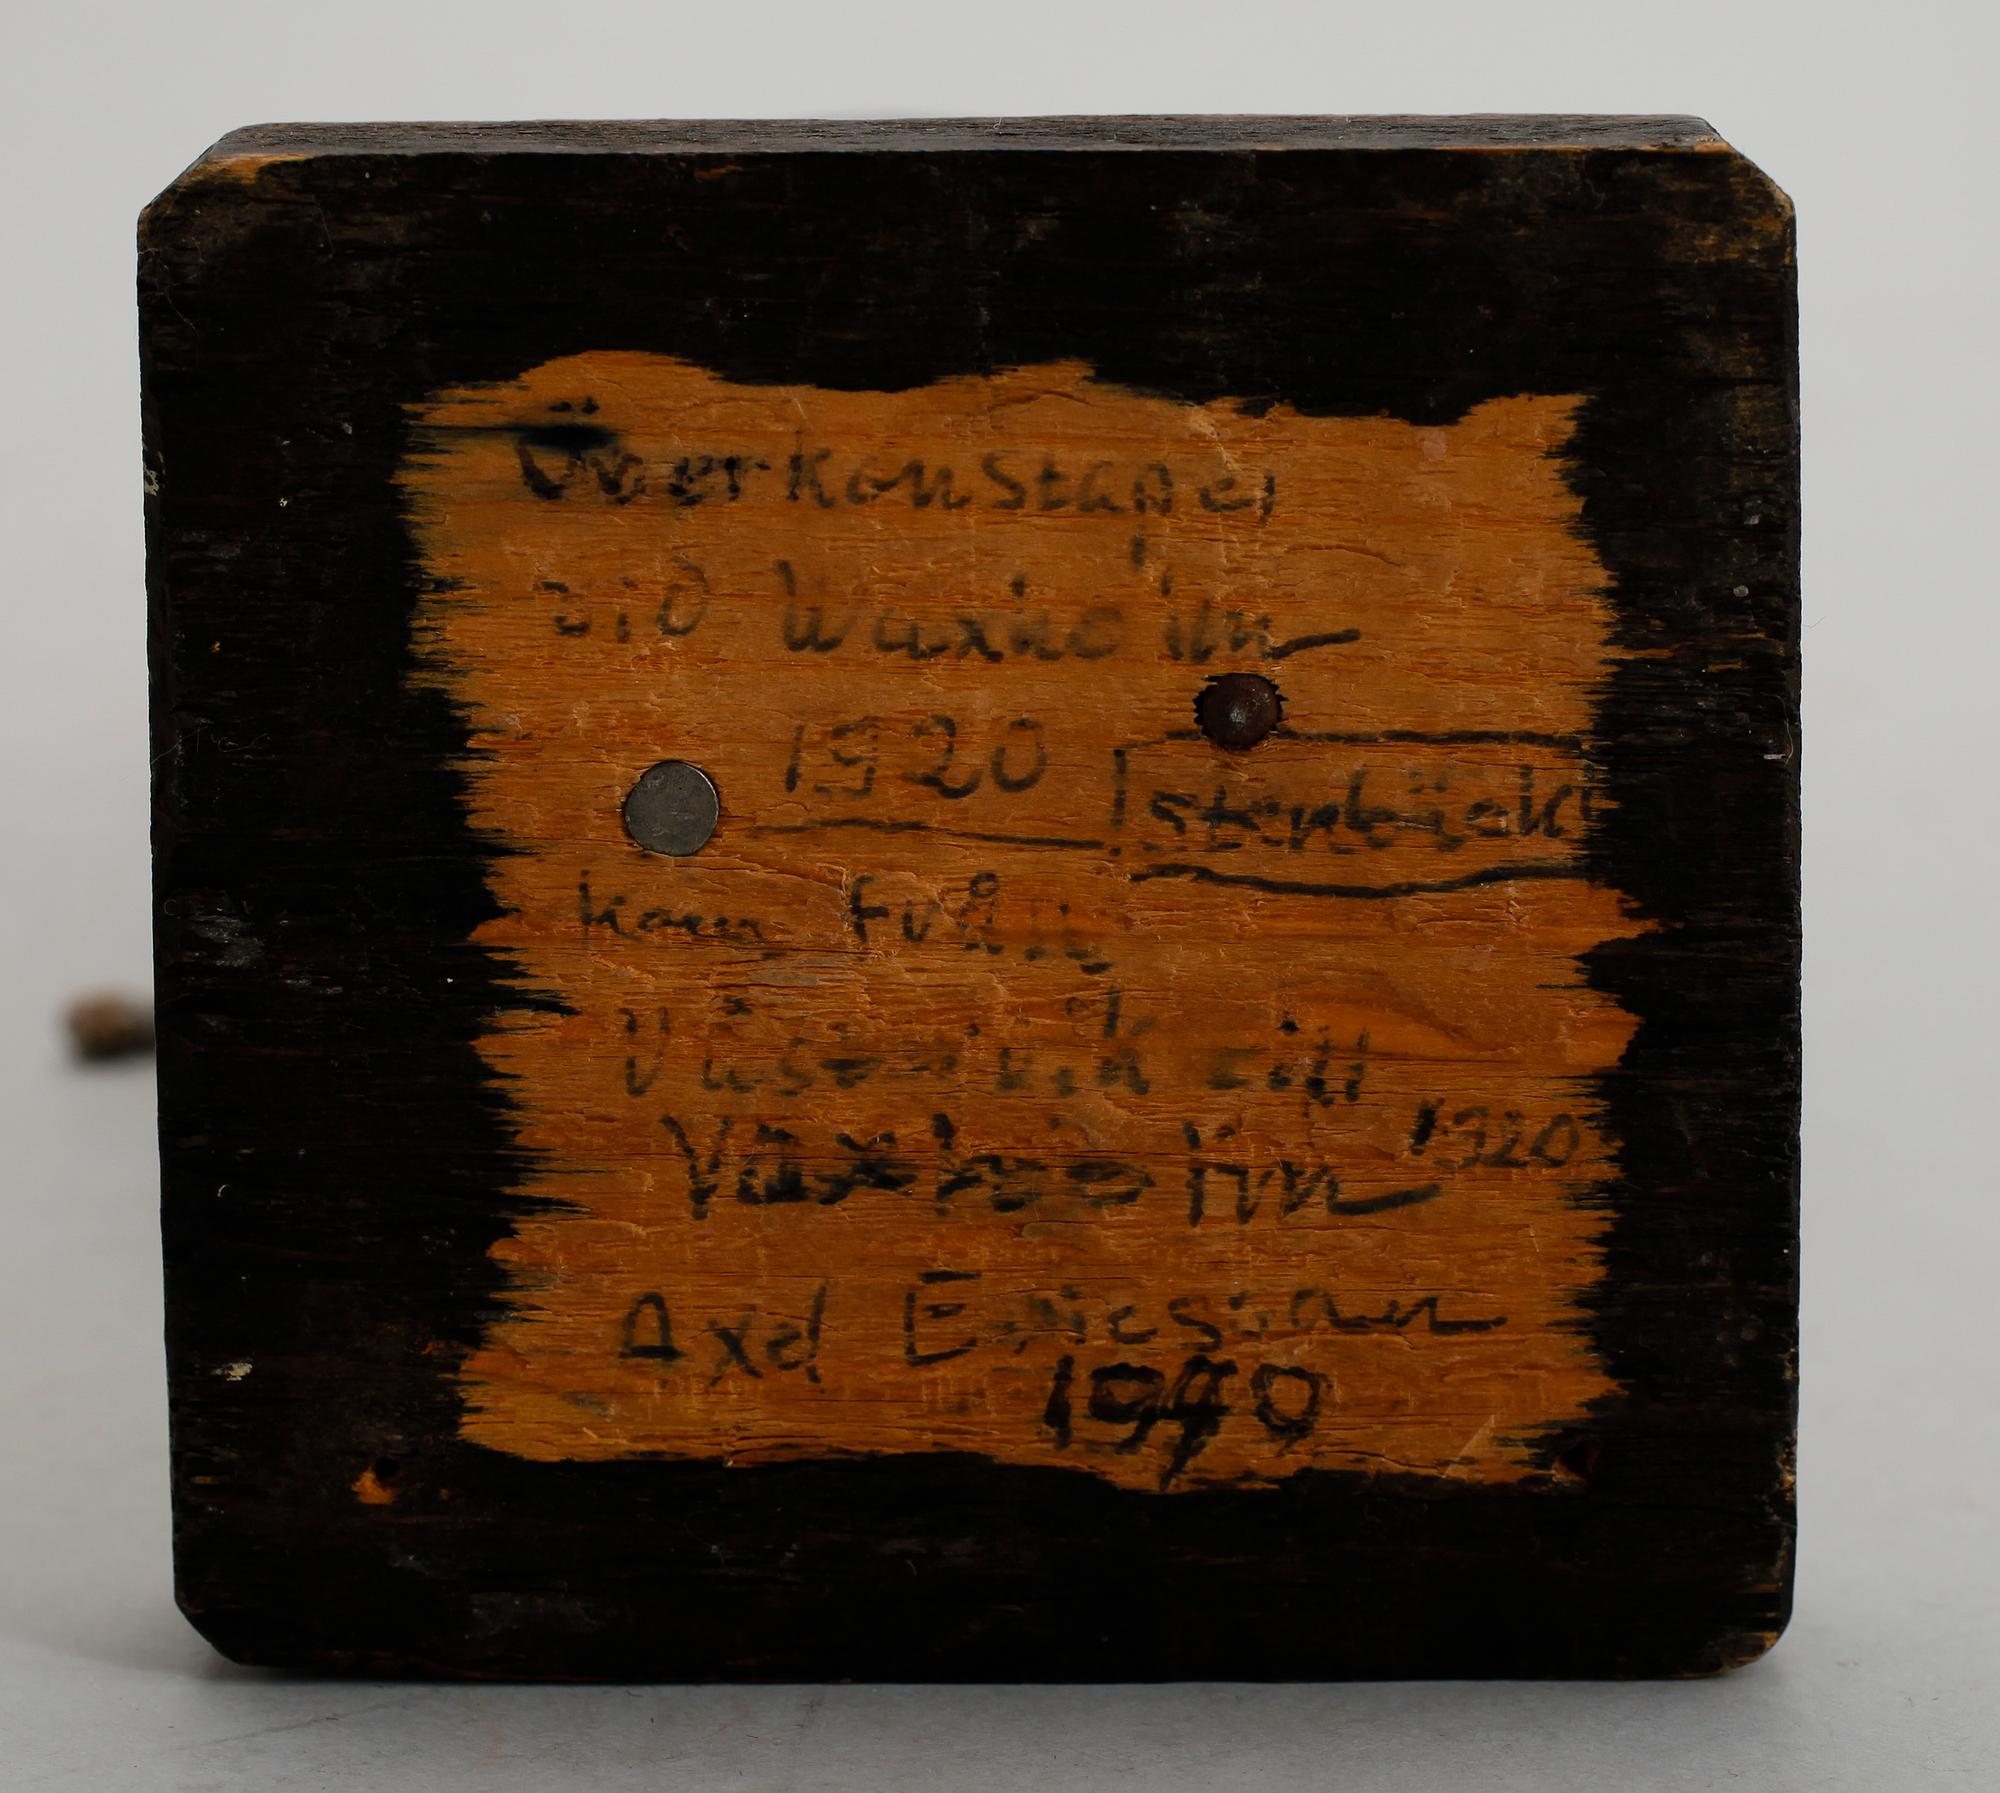 Överkonstapel
vid Waxholm
1920
Stenbäck
kom från
Västervik till
Vaxholm 1920
Axel Ericsson
1940